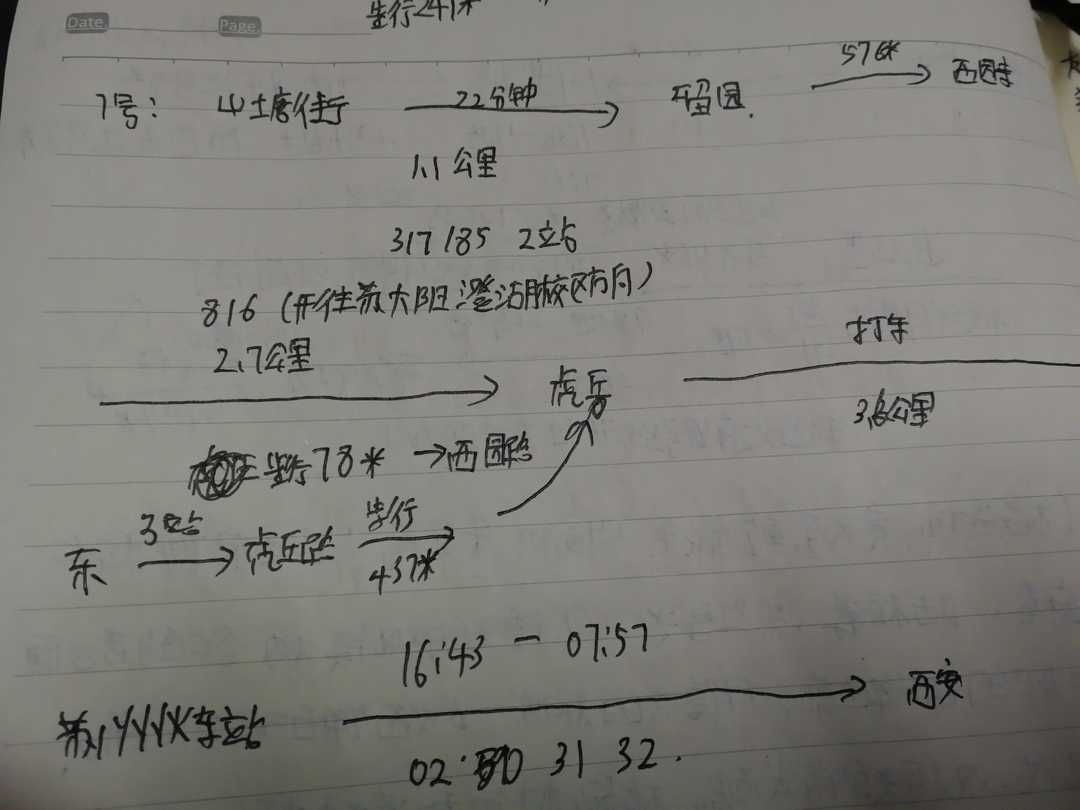 步行241米
Date Page
7号: 山塘街 22分钟 留园. 576米 西园寺
1.1公里
317 185 2站
816 (开往苏大阳澄湖校区方向)
2.7公里 打车
虎丘 3.6公里
步行78米 →西园路
东 3站 虎丘路 步行 437米
16:43 - 07:57
苏州火车站 西安
02: 31 32.